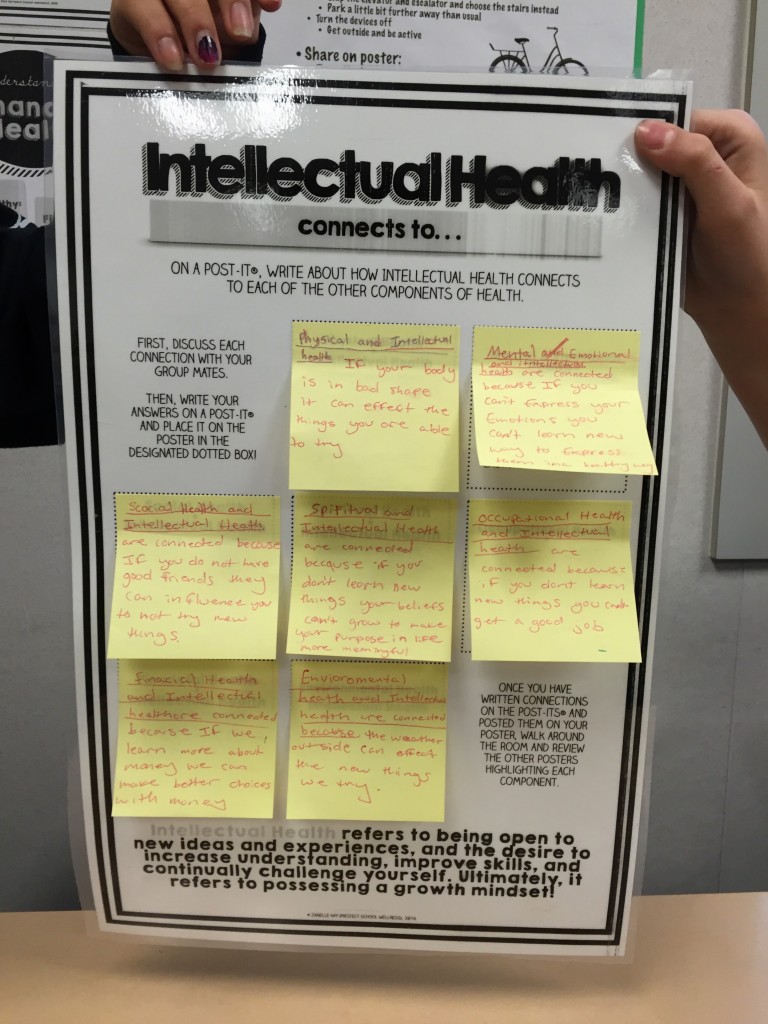 elevator and escalator and choose the stairs instead
• Park a little bit further away than usual
• Turn the devices off
• Get outside and be active
• Share on poster:
Intellectual Health
connects to...
ON A POST-IT®, WRITE ABOUT HOW INTELLECTUAL HEALTH CONNECTS
TO EACH OF THE OTHER COMPONENTS OF HEALTH.
FIRST, DISCUSS EACH
CONNECTION WITH YOUR
GROUP MATES.
THEN, WRITE YOUR
ANSWERS ON A POST-IT®
AND PLACE IT ON THE
POSTER IN THE
DESIGNATED DOTTED BOX!
Physical and Intellectual
health If your body
is in bad shape
it can effect the
things you are able
to try
Mental and Emotional
and intellectual
health are connected
because If you
can't Express your
Emotions you
can't learn new
way to Express
them in a healthy way
Social Health and
Intellectual Health
are connected because
If you do not have
good friends they
can influence you
to not try new
things.
Spiritual and
Intellectual Health
are connected
because if you
don't learn new
things your beliefs
can't grow to make
your purpose in life
more meaningful
Occupational Health
and Intellectual
health are
connected because
if you don't learn
new things you can't
get a good job
Finacial Health
and Intellectual
healthare connected
because If we,
learn more about
money we can
make better choices
with money
Enviormental
heath and Intellectual
health are connected
because the weather
outside can effect
the new things
we try.
ONCE YOU HAVE
WRITTEN CONNECTIONS
ON THE POST-ITS® AND
POSTED THEM ON YOUR
POSTER, WALK AROUND
THE ROOM AND REVIEW
THE OTHER POSTERS
HIGHLIGHTING EACH
COMPONENT.
Intellectual Health refers to being open to
new ideas and experiences, and the desire to
increase understanding, improve skills, and
continually challenge yourself. Ultimately, it
refers to possessing a growth mindset!